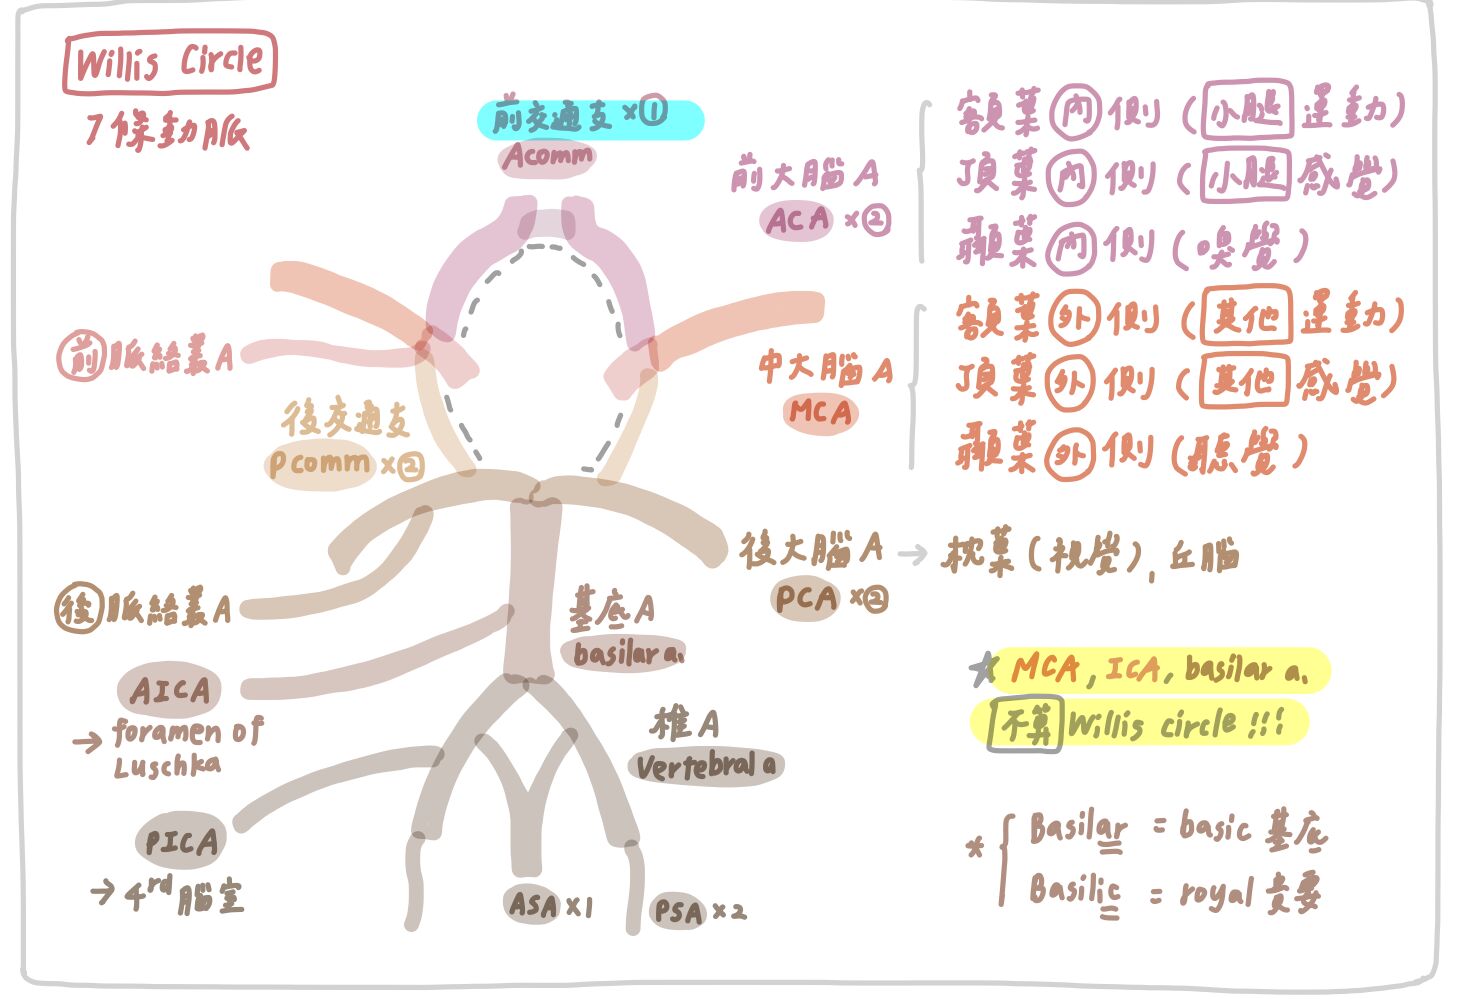 Willis Circle
7條動脈
前交通支×①
Acomm
前大腦A
ACA ×②
額葉內側(小腿運動)
頂葉內側(小腿感覺)
顳葉內側(嗅覺)
中大腦A
MCA
額葉外側(其他運動)
頂葉外側(其他感覺)
顳葉外側(聽覺)
前脈絡叢A
後交通支
Pcomm×②
後大腦A → 枕葉(視覺), 丘腦
PCA ×②
後脈絡叢A
基底A
basilar a.
AICA
→ foramen of
Luschka
椎A
Vertebral a
PICA
→ 4rd腦室
ASA ×1
PSA ×2
☆ MCA, ICA, basilar a.
不算 Willis circle!!!
* { Basilar = basic 基底
Basilic = royal 貴要